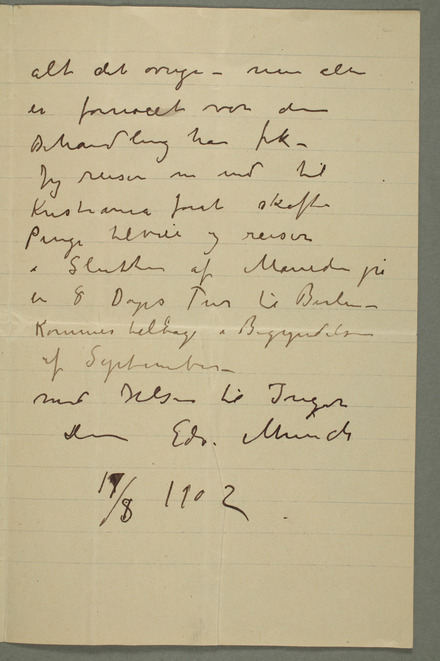 alt det øvrige – men alle
er fornøiet ved den
Behandling han fik –
Jeg reiser nu ind til
Kristiania forat skaffe
Penge tilveie og reiser
i Slutten af Maaneden på
en 8 Dages Tur til Berlin –
Kommer tilbage i Begyndelsen
af September –
med Hilsen til Inger
Din Edv. Munch
17/8 1902